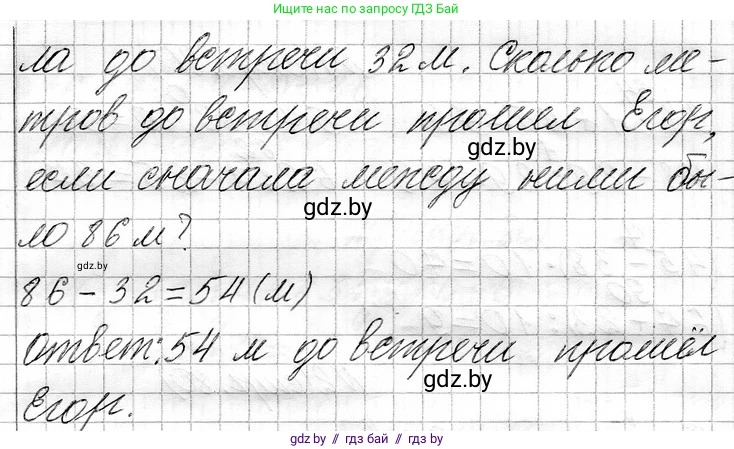 Пишите нас по запросу ГДЗ Бай
ла до встречи 32 м. Сколько ме-
тров до встречи прошел Егор,
gdz.by
если сначала между ними бы-
gdz.by
ло 86 м?
gdz.by
86 - 32 = 54 (м)
Ответ: 54 м до встречи прошёл
gdz.by
Егор.
gdz.by // гдз бай // гдз.бу